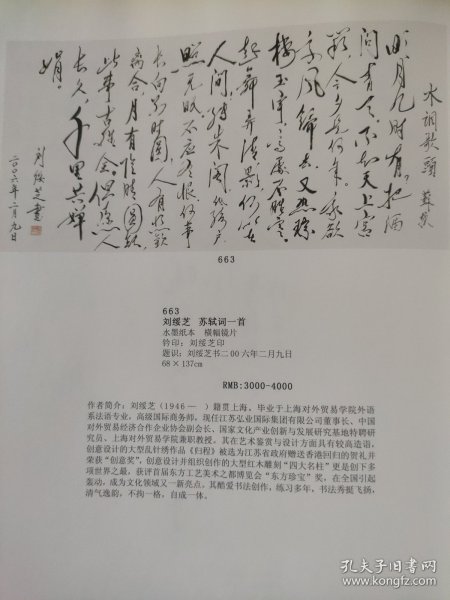 水調歌頭 蘇軾
明月几时有，把酒
问青天。不知天上宫
阙，今夕是何年。我欲
乘风归去，又恐琼
楼玉宇，高处不胜寒
起舞弄清影，何似在
人间。转朱阁，低绮户
照无眠。不应有恨，何事
长向别时圆。人有悲欢
离合，月有阴晴圆缺
此事古难全。但愿人
长久，千里共婵
娟。
刘绥芝书
二〇〇六年二月九日
663
663
刘绥芝 苏轼词一首
水墨纸本 横幅镜片
钤印：刘绥芝印
题识：刘绥芝书二00六年二月九日
68×137cm
RMB:3000-4000
作者简介：刘绥芝(1946— )籍贯上海。毕业于上海对外贸易学院外语
系法语专业，高级国际商务师。现任江苏弘业国际集团有限公司董事长、中国
对外贸易经济合作企业协会副会长、国家文化产业创新与发展研究基地特聘研
究员、上海对外贸易学院兼职教授。其在艺术鉴赏与设计方面具有较高造诣，
创意设计的大型乱针绣作品《归程》被选为江苏省政府赠送香港回归的贺礼并
荣获“创意奖”，创意设计并组织创作的大型红木雕刻“四大名柱”更是创下多
项世界之最，获评首届东方工艺美术之都博览会“东方珍宝”奖，在全国引起
轰动，成为文化领域又一新亮点。其酷爱书法创作，练习多年，书法秀挺飞扬，
清气逸韵，不拘一格，自成一体。
孔夫子旧书网
www.kongfz.com